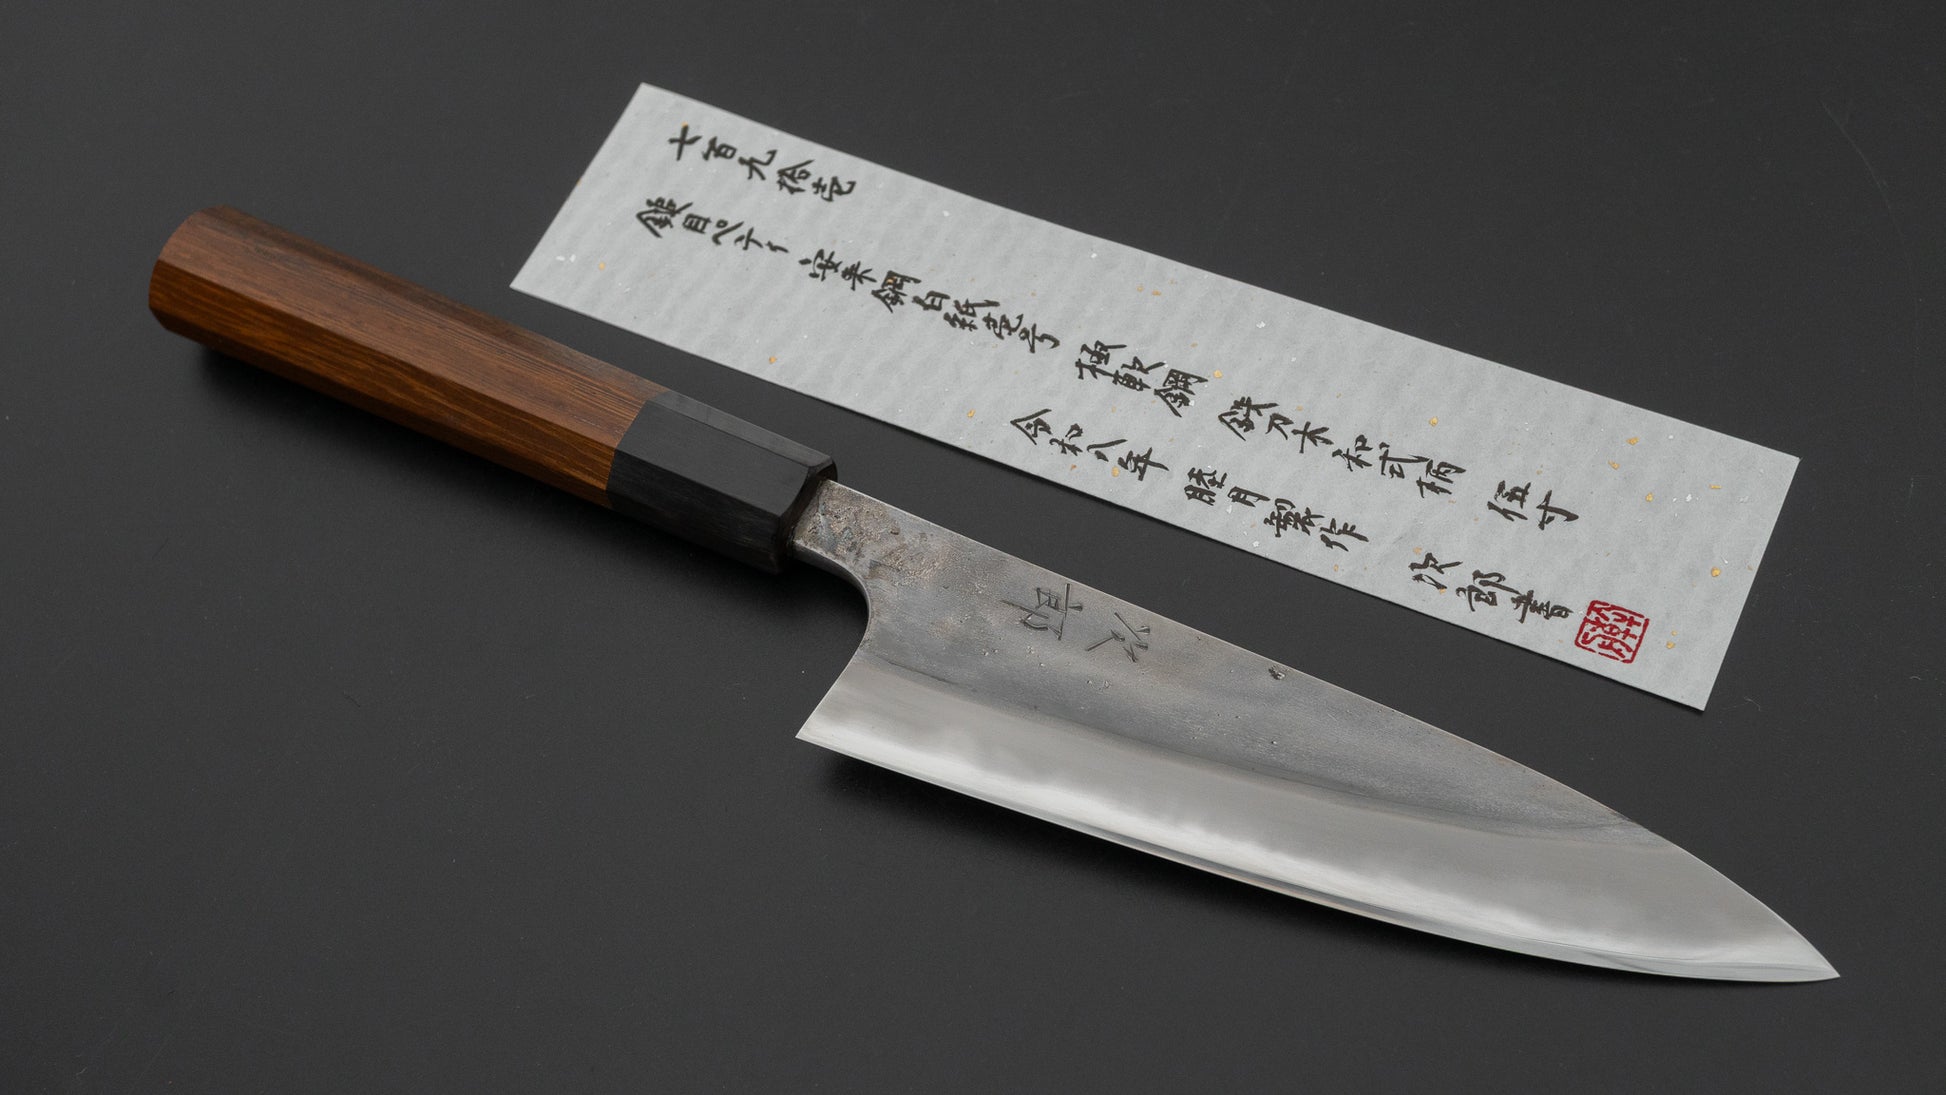 七百九拾壱
鎚目ペティ 安来鋼白紙壱号 極軟鋼 鉄刀木和式柄 伍寸
令和八年 睦月製作 次郎書
次郎